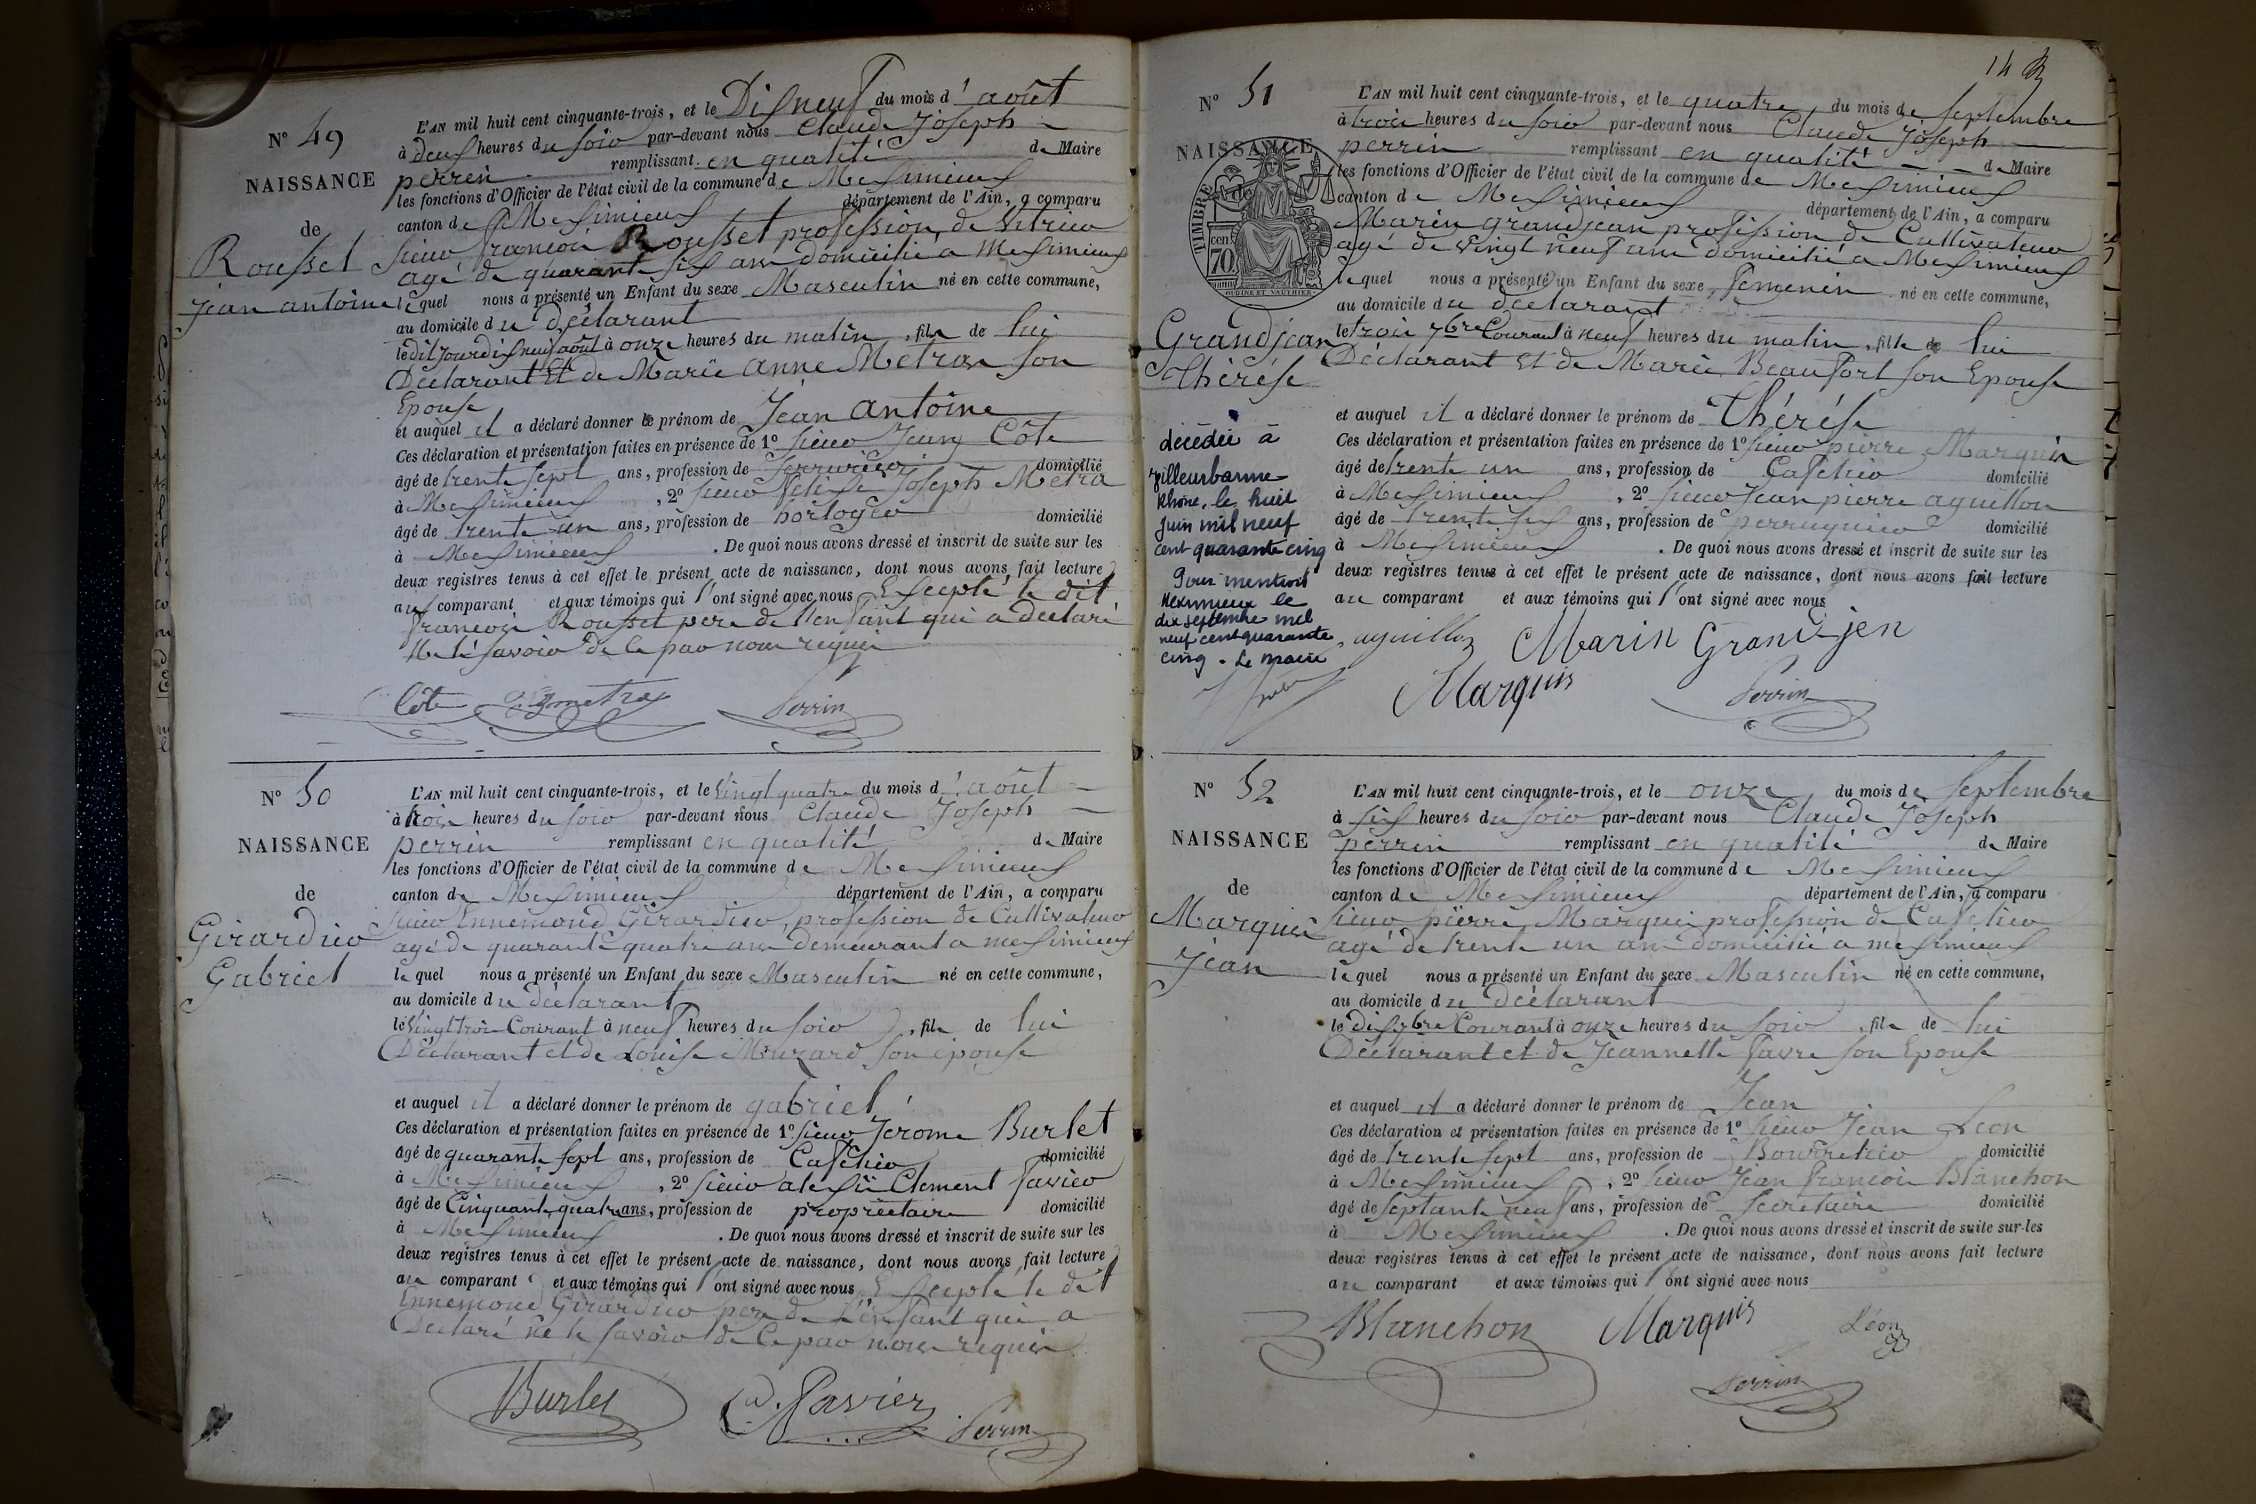 N° 49
NAISSANCE
de
Rousset
Jean antoine
L'AN mil huit cent cinquante-trois, et le Dixneuf du mois d'août
à deux heures du soir par-devant nous Claude Joseph
perrin remplissant en qualité de Maire
les fonctions d'Officier de l'état civil de la commune de Meximieux
canton de Meximieux département de l'Ain, a comparu
sieur françois Rousset profession de Vitrier
agé de quarante six ans domicilié à Meximieux
lequel nous a présenté un Enfant du sexe Masculin né en cette commune,
au domicile du déclarant
le dit jour dixneuf août à onze heures du matin, fils de lui
Déclarant Et de Marie anne Metras son
Epouse
et auquel il a déclaré donner le prénom de Jean antoine
Ces déclaration et présentation faites en présence de 1° sieur Jean Côte
âgé de trente sept ans, profession de serrurier domicilié
à Meximieux, 2° sieur Joseph Metra
âgé de trente un ans, profession de horloger domicilié
à Meximieux. De quoi nous avons dressé et inscrit de suite sur les
deux registres tenus à cet effet le présent acte de naissance, dont nous avons fait lecture
au comparant et aux témoins qui l'ont signé avec nous Excepté le dit
françois Rousset pere de l'enfant qui a declaré
ne le savoir de ce par nous requis
Côte metra Perrin
N° 50
NAISSANCE
de
Girardier
Gabriel
L'AN mil huit cent cinquante-trois, et le Vingt quatre du mois d'août
à trois heures du soir par-devant nous Claude Joseph
perrin remplissant en qualité de Maire
les fonctions d'Officier de l'état civil de la commune de Meximieux
canton de Meximieux département de l'Ain, a comparu
sieur Ennemond Girardier, profession de Cultivateur
agé de quarante quatre ans demeurant a meximieux
lequel nous a présenté un Enfant du sexe Masculin né en cette commune,
au domicile du déclarant
le Vingt trois Courant à neuf heures du soir, fils de lui
Déclarant et de Louise Muzard son épouse
et auquel il a déclaré donner le prénom de gabriel
Ces déclaration et présentation faites en présence de 1° sieur Jerome Burlet
âgé de quarante sept ans, profession de Cafetier domicilié
à Meximieux, 2° sieur alexis Clement Pavier
âgé de Cinquante quatre ans, profession de propriétaire domicilié
à Meximieux. De quoi nous avons dressé et inscrit de suite sur les
deux registres tenus à cet effet le présent acte de naissance, dont nous avons fait lecture
au comparant et aux témoins qui l'ont signé avec nous Excepté le dit
Ennemond Girardier pere de l'enfant qui a
Declaré ne le savoir de ce par nous requis
Burlet Pavier Perrin
14
N° 51
NAISSANCE
TIMBRE
70
Grandjean
Thérése
décédée à
Villeurbanne
Rhône, le huit
Juin mil neuf
cent quarante cinq
Pour mention
Meximieux le
dix septembre mil
neuf cent quarante
cinq. Le maire
L'AN mil huit cent cinquante-trois, et le quatre du mois de septembre
à trois heures du soir par-devant nous Claude Joseph
perrin remplissant en qualité de Maire
les fonctions d'Officier de l'état civil de la commune de Meximieux
canton de Meximieux département de l'Ain, a comparu
Marin grandjean profession de Cultivateur
agé de vingt neuf ans domicilié a Meximieux
lequel nous a présenté un Enfant du sexe femenin né en cette commune,
au domicile du déclarant
le trois 7bre Courant à neuf heures du matin, fille de lui
Déclarant Et de Marie Beaufort son Epouse
et auquel il a déclaré donner le prénom de Thérése
Ces déclaration et présentation faites en présence de 1° sieur pierre Marquis
âgé de trente un ans, profession de Cafetier domicilié
à Meximieux, 2° sieur Jean pierre aguillon
âgé de trente six ans, profession de perruquier domicilié
à Meximieux. De quoi nous avons dressé et inscrit de suite sur les
deux registres tenus à cet effet le présent acte de naissance, dont nous avons fait lecture
au comparant et aux témoins qui l'ont signé avec nous
aguillon Marin Grandjen
Marquis Perrin
N° 52
NAISSANCE
de
Marquis
Jean
L'AN mil huit cent cinquante-trois, et le onze du mois de Septembre
à six heures du soir par-devant nous Claude Joseph
perrin remplissant en qualité de Maire
les fonctions d'Officier de l'état civil de la commune de Meximieux
canton de Meximieux département de l'Ain, a comparu
sieur pierre Marquis profession de Cafetier
agé de trente un ans domicilié a meximieux
lequel nous a présenté un Enfant du sexe Masculin né en cette commune,
au domicile du déclarant
le dix 7bre Courant à onze heures du soir, fils de lui
Déclarant et de Jeannette favre son Epouse
et auquel il a déclaré donner le prénom de Jean
Ces déclaration et présentation faites en présence de 1° sieur Jean Leon
âgé de trente sept ans, profession de Bourrelier domicilié
à Meximieux, 2° sieur Jean françois Blanchon
âgé de septante neuf ans, profession de secretaire domicilié
à Meximieux. De quoi nous avons dressé et inscrit de suite sur les
deux registres tenus à cet effet le présent acte de naissance, dont nous avons fait lecture
au comparant et aux témoins qui l'ont signé avec nous
Blanchon Marquis Léon
Perrin